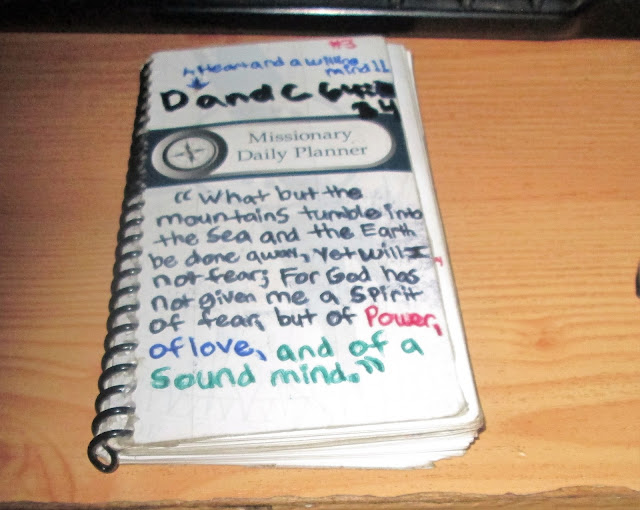 #3
A Heart and a willing
mind!!
D and C 64:
34
Missionary
Daily Planner
"What but the
mountains tumble into
the Sea and the Earth
be done away, Yet will I
not fear; For God has
not given me a Spirit
of fear, but of Power,
of love, and of a
Sound mind."